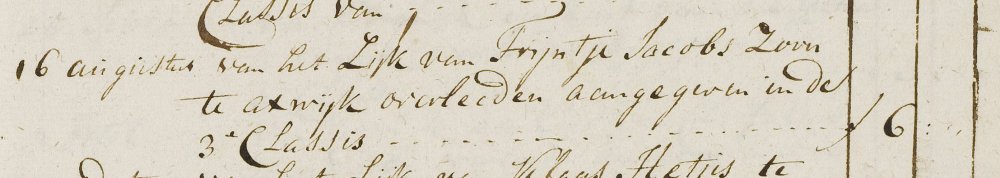 Classis van - - - -
16 augustus van het Lijk van Trijntje Jacobs Zoon
te axwijk overleeden aangegeven in de
3e Classis - - - - - - - - - - f 6 : -
Lijk van Klaas Hetjis te